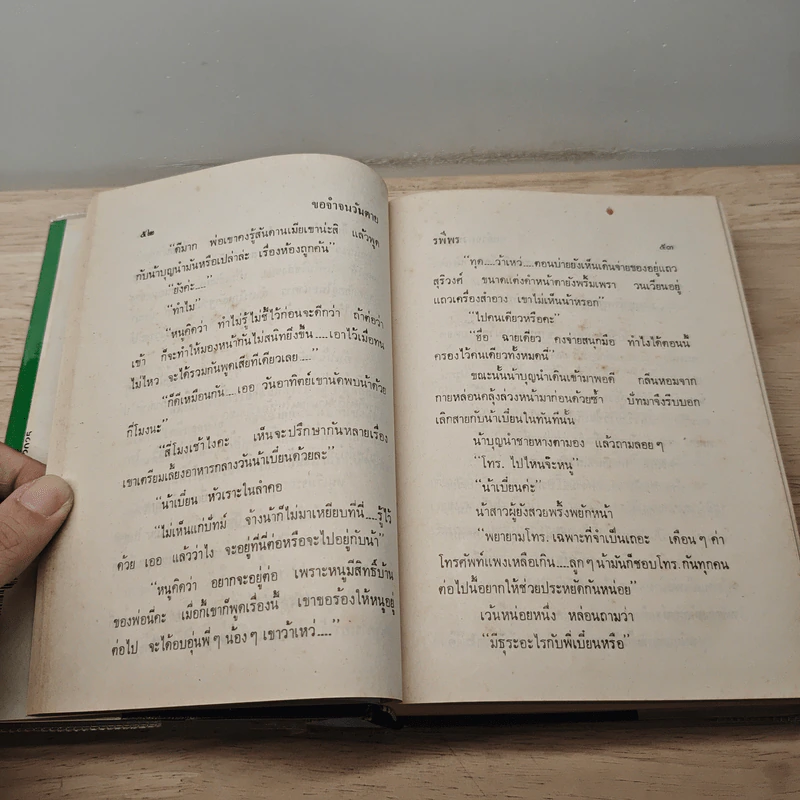 ๕๒
ขอจำจนวันตาย
“ดีมาก พ่อเขาคงรู้สันดานเมียเขาน่ะสิ แล้วพูด
กับน้าบุญนำมันหรือเปล่าล่ะ เรื่องห้องถูกค้น”
“ยังค่ะ....”
“ทำไม”
“หนูคิดว่า ทำไม่รู้ไม่ชี้ไว้ก่อนจะดีกว่า ถ้าต่อว่า
เข้า ก็จะทำให้มองหน้ากันไม่สนิทยิ่งขึ้น.....เอาไว้เมื่อทน
ไม่ไหว จะได้รวมกันพูดเสียทีเดียวเลย....”
“ก็ดีเหมือนกัน.... เออ วันอาทิตย์เขานัดพบน้าด้วย
กี่โมงนะ”
“สี่โมงเช้าไงคะ เห็นจะปรึกษากันหลายเรื่อง
เขาเตรียมเลี้ยงอาหารกลางวันน้าเบี่ยนด้วยละ”
“น้าเบี่ยน หัวเราะในลำคอ
“ไม่เห็นแก่บัทม์ จ้างน้าก็ไม่มาเหยียบที่นี่....รู้ไว้
ด้วย เออ แล้วว่าไง จะอยู่ที่นี่ต่อหรือจะไปอยู่กับน้า”
“หนูคิดว่า อยากจะอยู่ต่อ เพราะหนูมีสิทธิ์บ้าน
ของพ่อนี่คะ เมื่อกี้เขาก็พูดเรื่องนี้ เขาขอร้องให้หนูอยู่
ต่อไป จะได้อบอุ่นพี่ๆ น้องๆ เขาว้าเหว่....”
รพีพร
๕๓
“ทุด....ว้าเหว่....ตอนบ่ายยังเห็นเดินจ่ายของอยู่แถว
สุริวงค์ ขนาดแต่งดำหน้าตายังพริ้มเพรา วนเวียนอยู่
แถวเครื่องสำอาง เขาไม่เห็นน้าหรอก”
“ไปคนเดียวหรือคะ”
“ฮื่อ ฉายเดี่ยว คงจ่ายสนุกมือ ทำไงได้ตอนนี้
ครองไว้คนเดียวทั้งหมดนี่”
ขณะนั้นน้าบุญนำเดินเข้ามาพอดี กลิ่นหอมจาก
กายหล่อนคลุ้งล่วงหน้ามาก่อนด้วยซ้ำ บัทมาจึงรีบบอก
เลิกสายกับน้าเบี่ยนในทันทีนั้น
น้าบุญนำชายหางตามอง แล้วถามลอยๆ
“โทร. ไปไหนจ๊ะหนู”
“น้าเบี่ยนค่ะ”
น้าสาวผู้ยังสวยพริ้งพยักหน้า
“พยายามโทร. เฉพาะที่จำเป็นเถอะ เดือนๆ ค่า
โทรศัพท์แพงเหลือเกิน....ลูกๆ น้ามันก็ชอบโทร. กันทุกคน
ต่อไปนี้อยากให้ช่วยประหยัดกันหน่อย”
เว้นหน่อยหนึ่ง หล่อนถามว่า
“มีธุระอะไรกับพี่เบี่ยนหรือ”